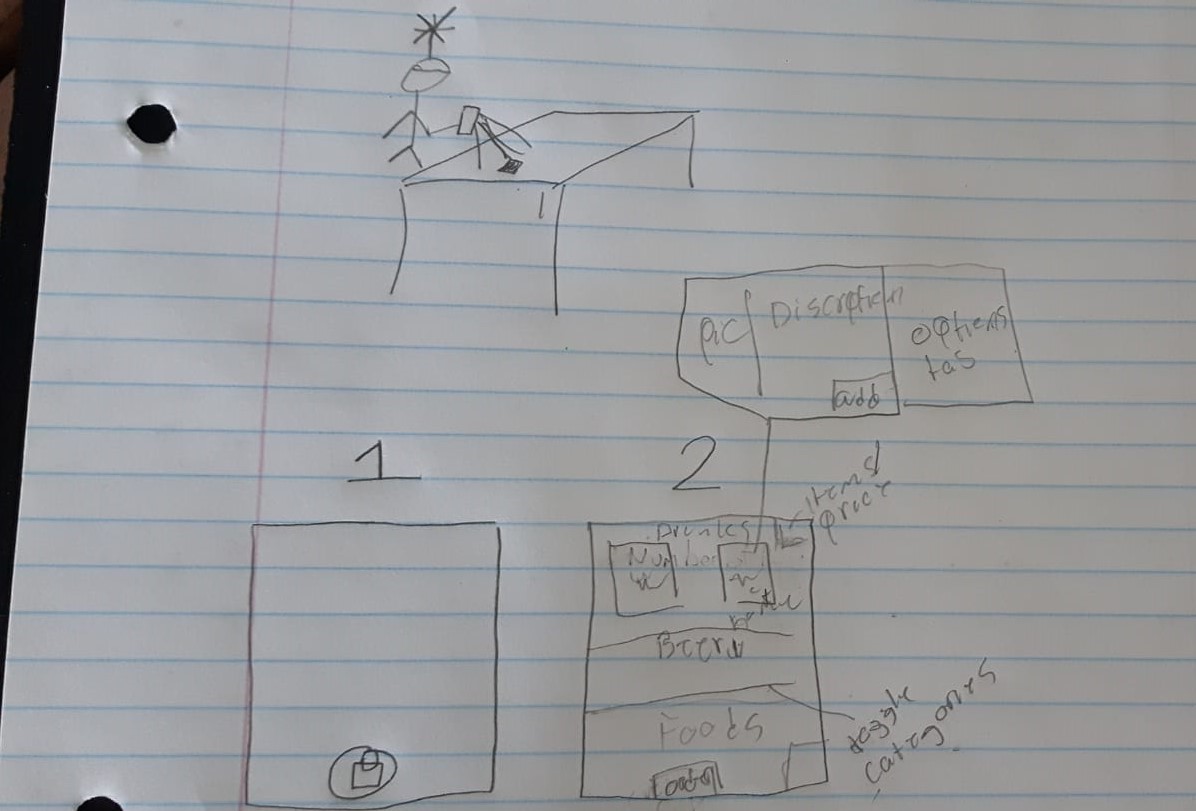 pic
Discription
options
tas
add
1
2
items
price
Drinks
Number
Beers
Foods
toggle
categories